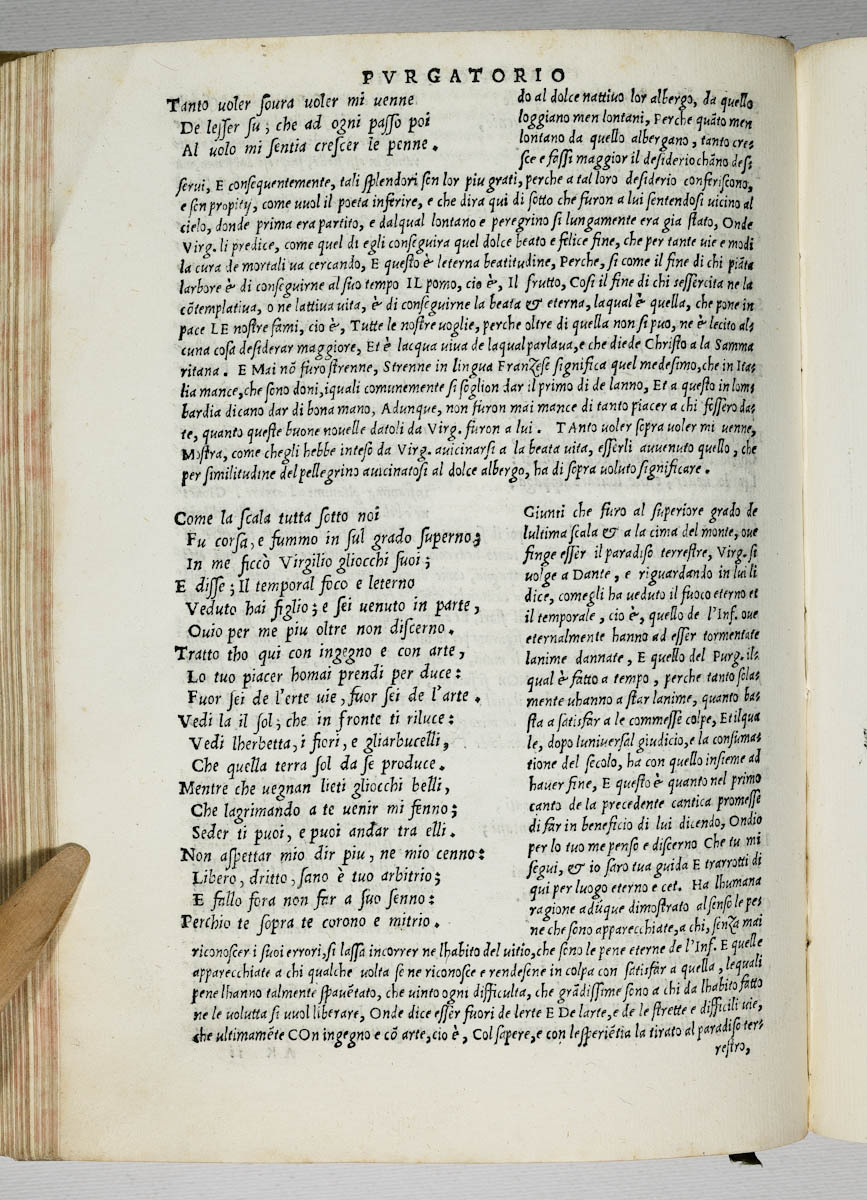 PVRGATORIO
Tanto uoler soura uoler mi uenne
De lesser su; che ad ogni passo poi
Al uolo mi sentia crescer le penne.
do al dolce nattiuo lor albergo, da quello
loggiano men lontani, Perche quāto men
lontano da quello albergano, tanto cre-
sce e fassi maggior il desiderio chāno des-
serui, E consequentemente, tali splendori son lor piu grati, perche a tal loro desiderio conferiscono,
e son propity, come uuol il poeta inferire, e che dira qui di sotto che furon a lui sentendosi uicino al
cielo, donde prima era partito, e dalqual lontano e peregrino si lungamente era gia stato, Onde
Virg. li predice, come quel di egli conseguira quel dolce beato e felice fine, che per tante uie e modi
la cura de mortali ua cercando, E questo è leterna beatitudine, Perche, si come il fine di chi piāta
larbore è di conseguirne al suo tempo IL pomo, cio è, Il frutto, Cosi il fine di chi sessercita ne la
cōtemplatiua, o ne lattiua uita, è di conseguirne la beata & eterna, laqual è quella, che pone in
pace LE nostre fami, cio è, Tutte le nostre uoglie, perche oltre di quella non si puo, ne è lecito al-
cuna cosa desiderar maggiore, Et è lacqua uiua de laqual parlaua, e che diede Christo a la Samma
ritana. E Mai nō furo strenne, Strenne in lingua Franzese significa quel medesimo, che in Ita-
lia mance, che sono doni, iquali comunemente si soglion dar il primo di de lanno, Et a questo in lom-
bardia dicano dar di bona mano, Adunque, non furon mai mance di tanto piacer a chi fossero da-
te, quanto queste buone nouelle datoli da Virg. furon a lui. TAnto uoler sopra uoler mi uenne,
Mostra, come chegli hebbe inteso da Virg. auicinarsi a la beata uita, esserli auuenuto quello, che
per similitudine del pellegrino auicinatosi al dolce albergo, ha di sopra uoluto significare.
Come la scala tutta sotto noi
Fu corsa, e fummo in sul grado superno;
In me ficcò Virgilio gliocchi suoi;
E disse; Il temporal foco e leterno
Veduto hai figlio; e sei uenuto in parte,
Ouio per me piu oltre non discerno.
Tratto tho qui con ingegno e con arte,
Lo tuo piacer homai prendi per duce:
Fuor sei de l'erte uie, fuor sei de l'arte.
Vedi la il sol; che in fronte ti riluce:
Vedi lherbetta, i fiori, e gliarbucelli,
Che quella terra sol da se produce.
Mentre che uegnan lieti gliocchi belli,
Che lagrimando a te uenir mi fenno;
Seder ti puoi, e puoi andar tra elli.
Non aspettar mio dir piu, ne mio cenno:
Libero, dritto, sano è tuo arbitrio;
E fallo fora non far a suo senno:
Perchio te sopra te corono e mitrio.
Giunti che furo al superiore grado de
lultima scala & a la cima del monte, oue
finge esser il paradiso terrestre, Virg. si
uolge a Dante, e riguardando in lui li
dice, comegli ha ueduto il fuoco eterno et
il temporale, cio è, quello de l'Inf. oue
eternalmente hanno ad esser tormentate
lanime dannate, E quello del Purg. il-
qual è fatto a tempo, perche tanto sola-
mente uhanno a star lanime, quanto ba-
sta a satisfar a le commesse colpe, Et ilqua
le, dopo luniuersal giudicio, e la consuma-
tione del secolo, ha con quello insieme ad
hauer fine, E questo è quanto nel primo
canto de la precedente cantica promesse
di far in beneficio di lui dicendo, Ondio
per lo tuo me penso e discerno Che tu mi
segui, & io saro tua guida E trarrotti di
qui per luogo eterno e cet. Ha lhumana
ragione adūque dimostrato al senso le pe-
ne che sono apparecchiate, a chi, senza mai
riconoscer i suoi errori, si lassa incorrer ne lhabito del uitio, che sono le pene eterne de l'Inf. E quelle
apparecchiate a chi qualche uolta se ne riconosce e rendesene in colpa con satisfar a quella, lequali
pene lhanno talmente spauētato, che uinto ogni difficulta, che grādissime sono a chi da lhabito fatto
ne le uolutta si uuol liberare, Onde dice esser fuori de lerte E De larte, e de le strette e difficili uie,
che ultimamēte COn ingegno e cō arte, cio è, Col sapere, e con lesperiētia la tirato al paradiso ter-
restro,